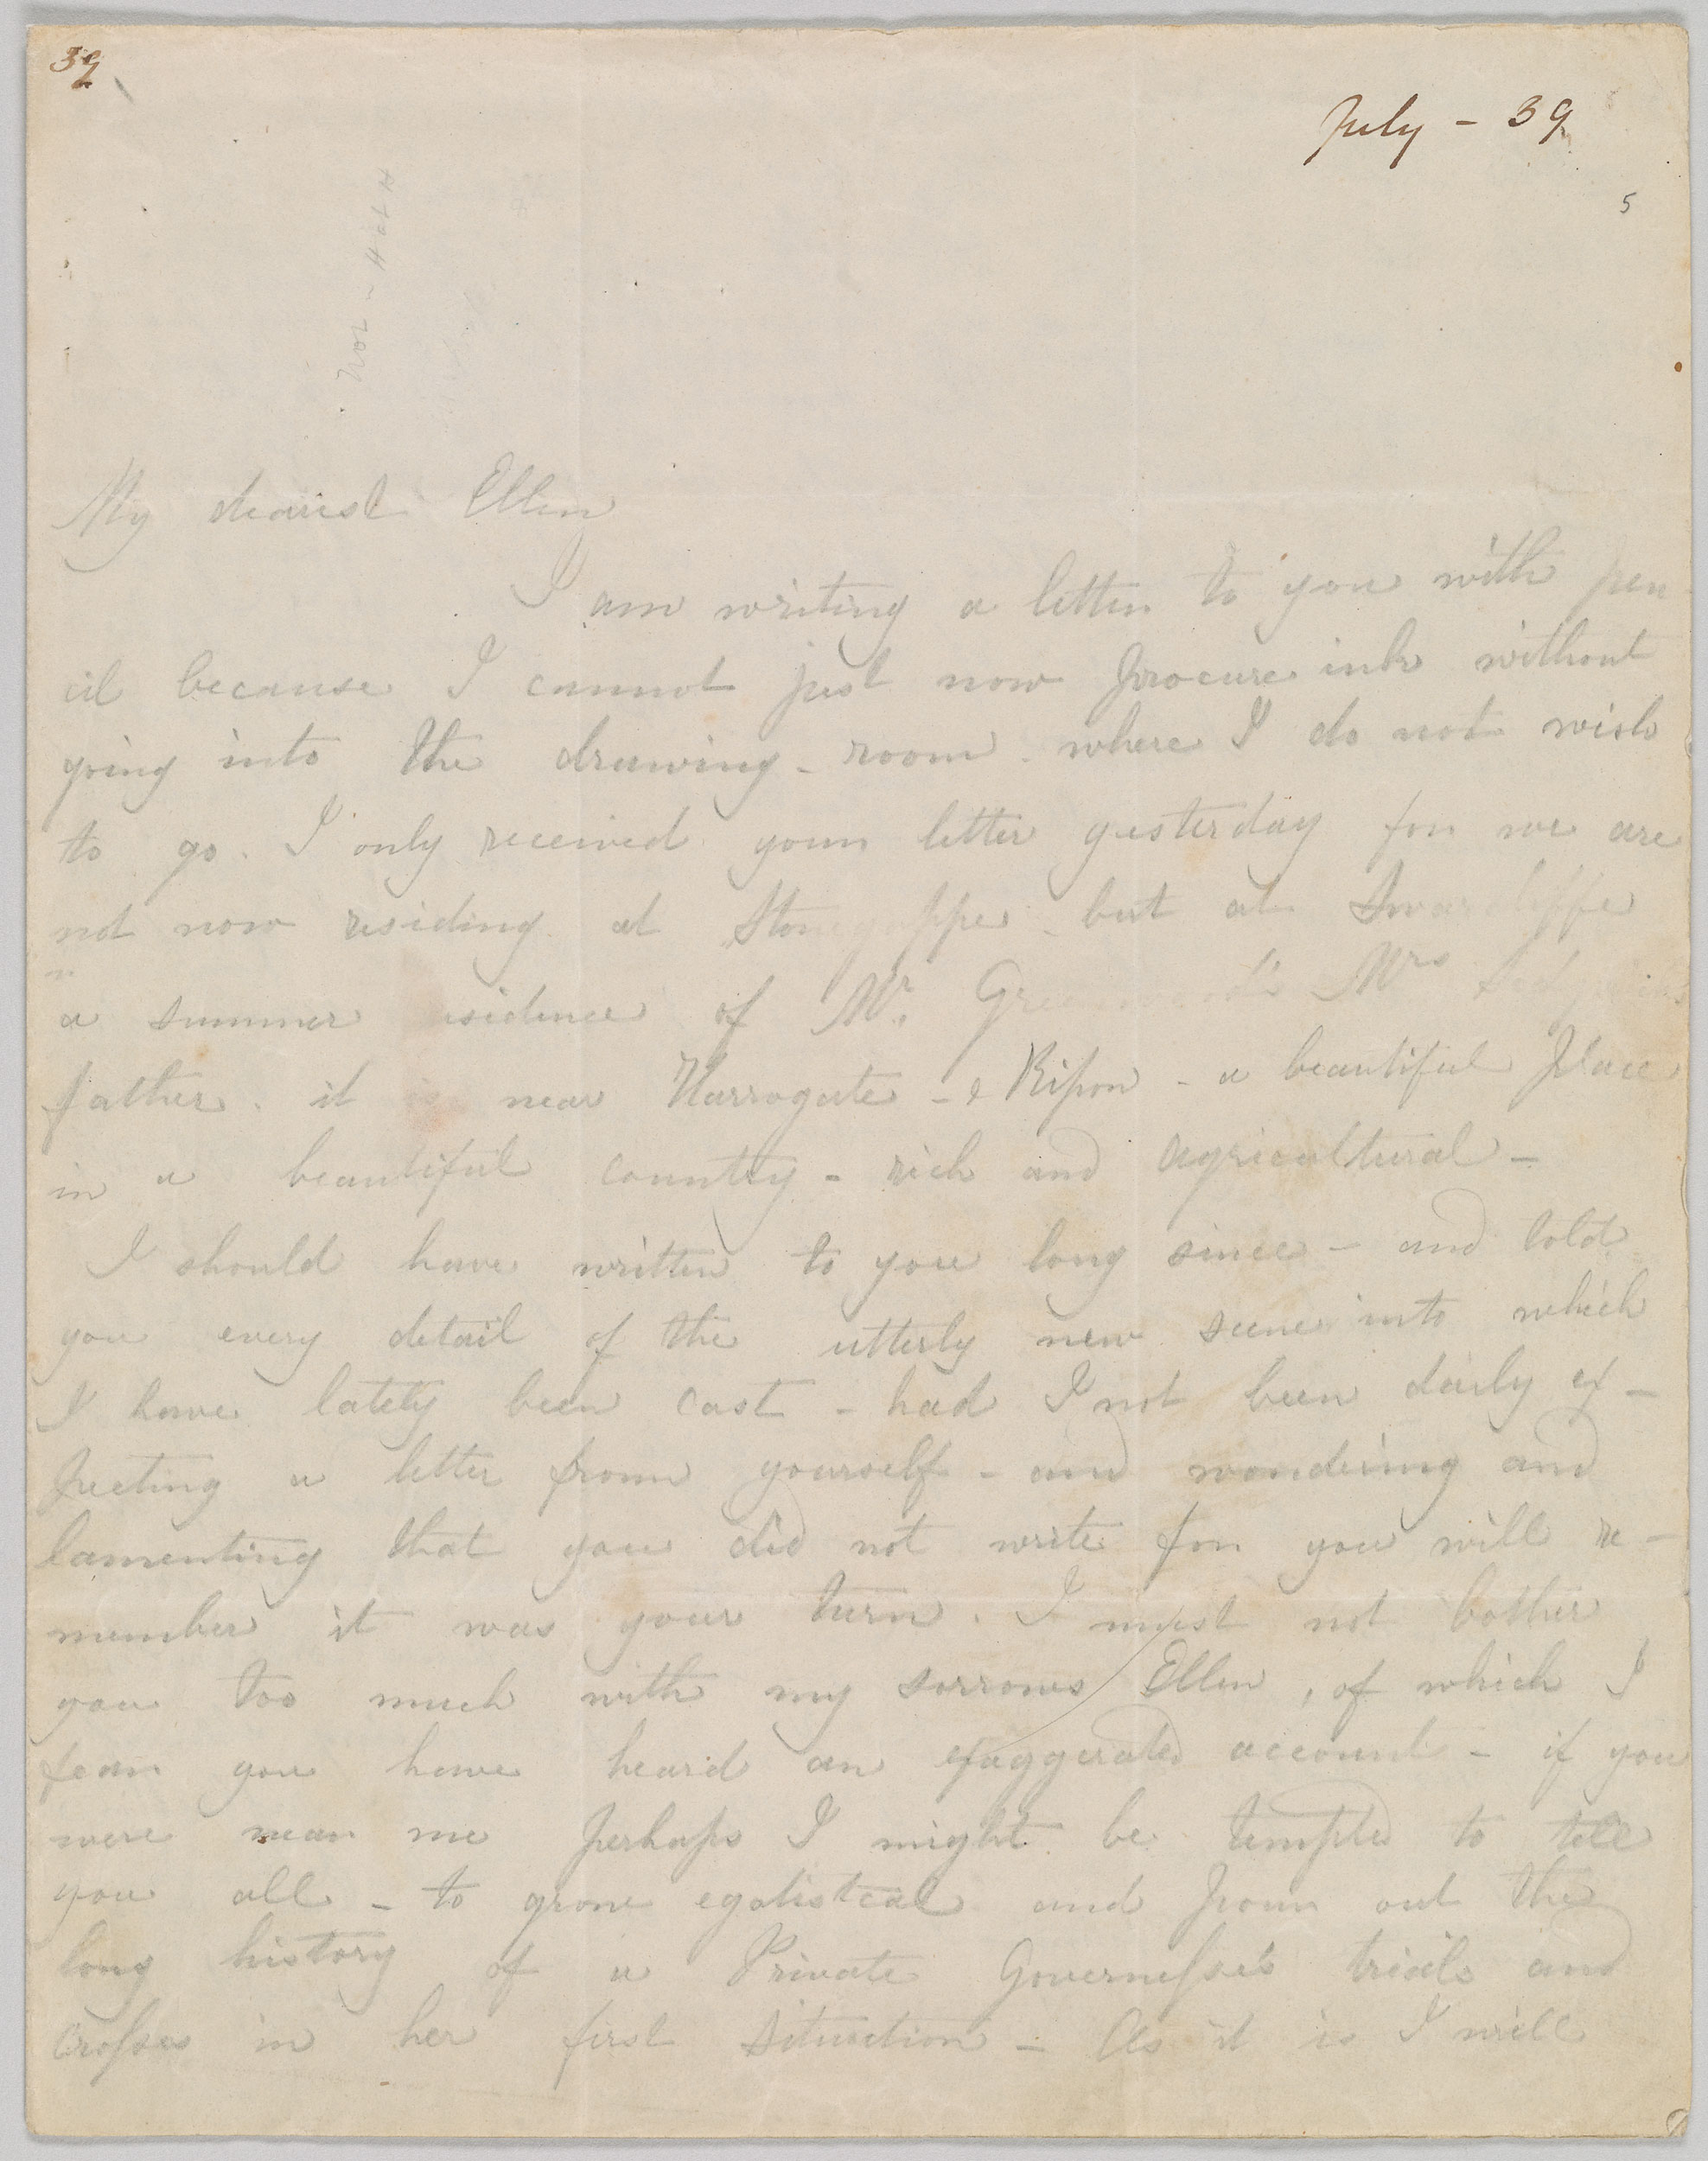 39
July - 39
5
My dearest Ellen
I am writing a letter to you with pen
cil because I cannot just now procure ink without
going into the drawing-room where I do not wish
to go. I only received your letter yesterday for we are
not now residing at Stonegappe but at Swarcliffe
a summer residence of Mr. Greenwood's Mrs Sidgwick's
father. it is near Harrogate - & Ripon - a beautiful place
in a beautiful country - rich and agricultural -
I should have written to you long since - and told
you every detail of the utterly new scene into which
I have lately been cast - had I not been daily ex -
pecting a letter from yourself - and wondering and
lamenting that you did not write for you will re -
member it was your turn. I must not bother
you too much with my sorrows Ellen, of which I
fear you have heard an exaggerated account - if you
were near me perhaps I might be tempted to tell
you all - to grow egotistical and pour out the
long history of a Private Governesse's trials and
crosses in her first Situation - As it is I will